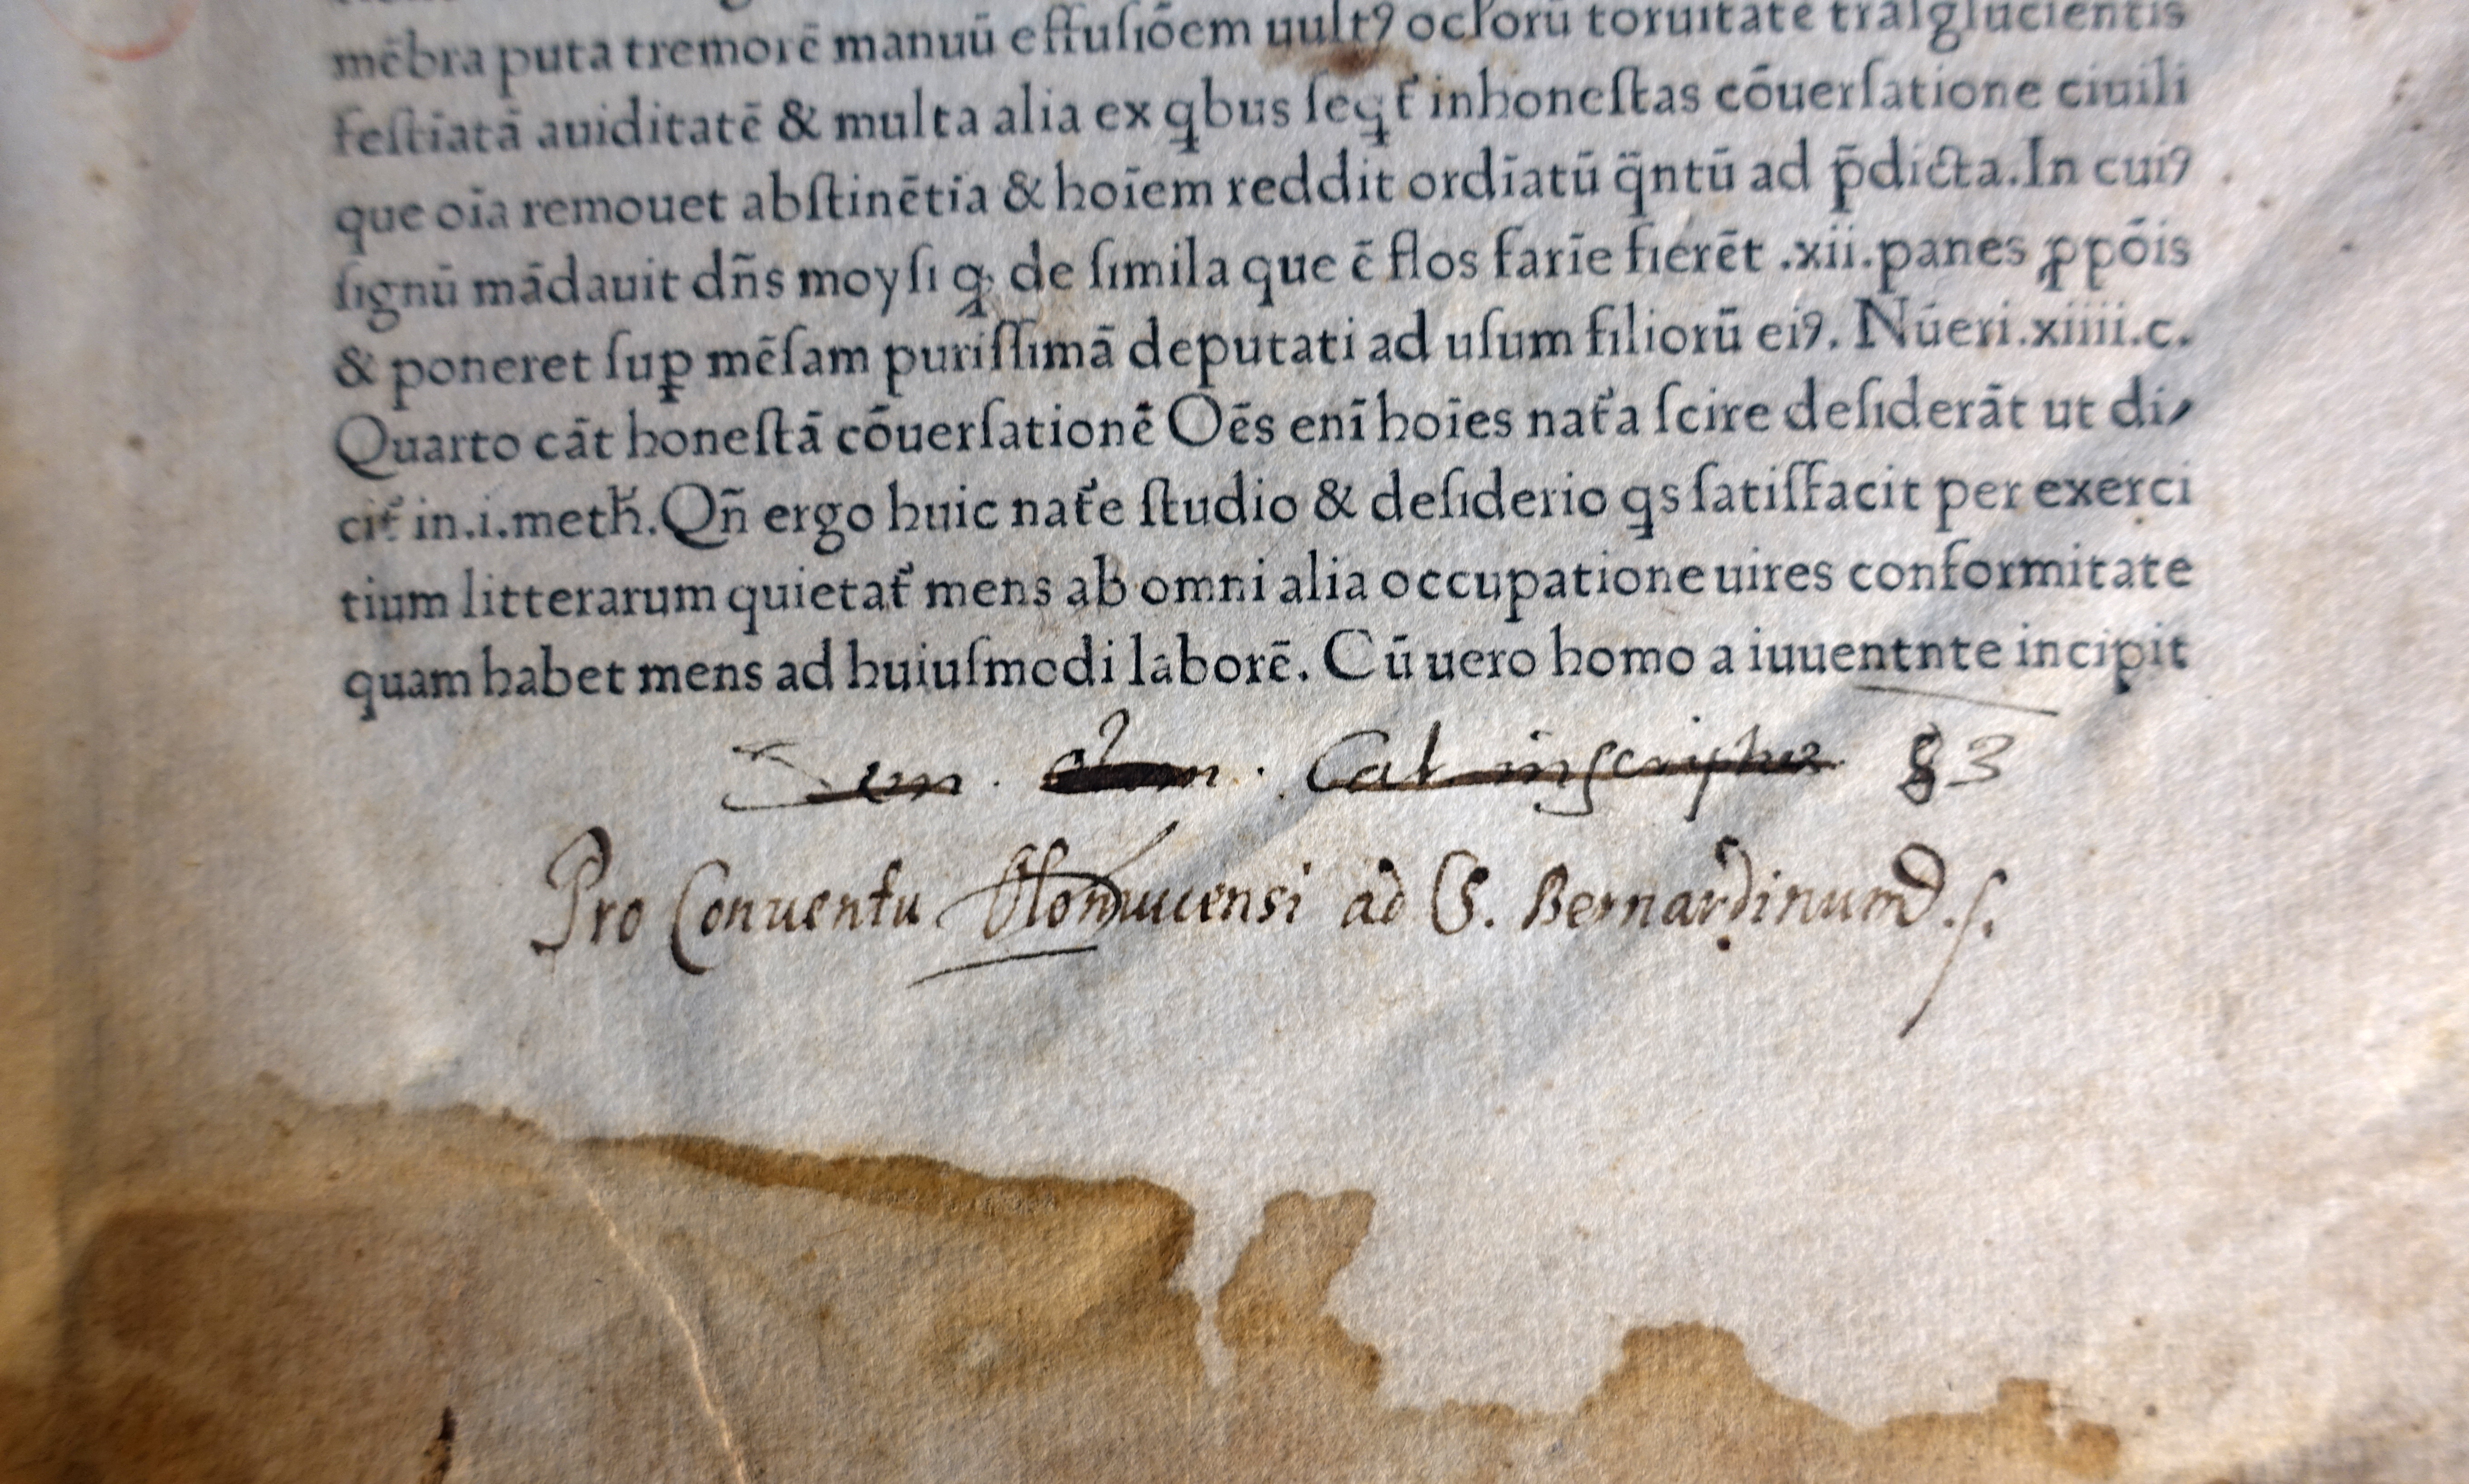 mēbra puta tremorē manuū effuſiōem uultꝰ oclorū toruitate traſglucientis
feſtīatā auiditatē & multa alia ex qbus ſeqt᷑ inhoneſtas cōuerſatione ciuili
que oīa remouet abſtinētia & hoīem reddit ordīatū q̄ntū ad p̄dicta.In cuiꝰ
ſignū mādauit dn̄s moyſi ꝙ de ſimila que ē flos farīe fierēt .xii.panes ꝓpōis
& poneret ſuꝑ mēſam puriſſimā deputati ad uſum filiorū eiꝰ. Nūeri.xiiii.c.
Quarto cāt honeſtā cōuerſationē Oēs enī hoīes nat᷑a ſcire deſiderāt ut di⸗
cit᷑ in.i.meth̄.Qn̄ ergo huic nat᷑e ſtudio & deſiderio qs ſatiſfacit per exerci
tium litterarum quietat᷑ mens ab omni alia occupatione uires conformitate
quam habet mens ad huiuſmodi laborē. Cū uero homo a iuuentnte incipit
Cat inscriptus 83
Pro Conuentu Olomucensi ad S. Bernardinum